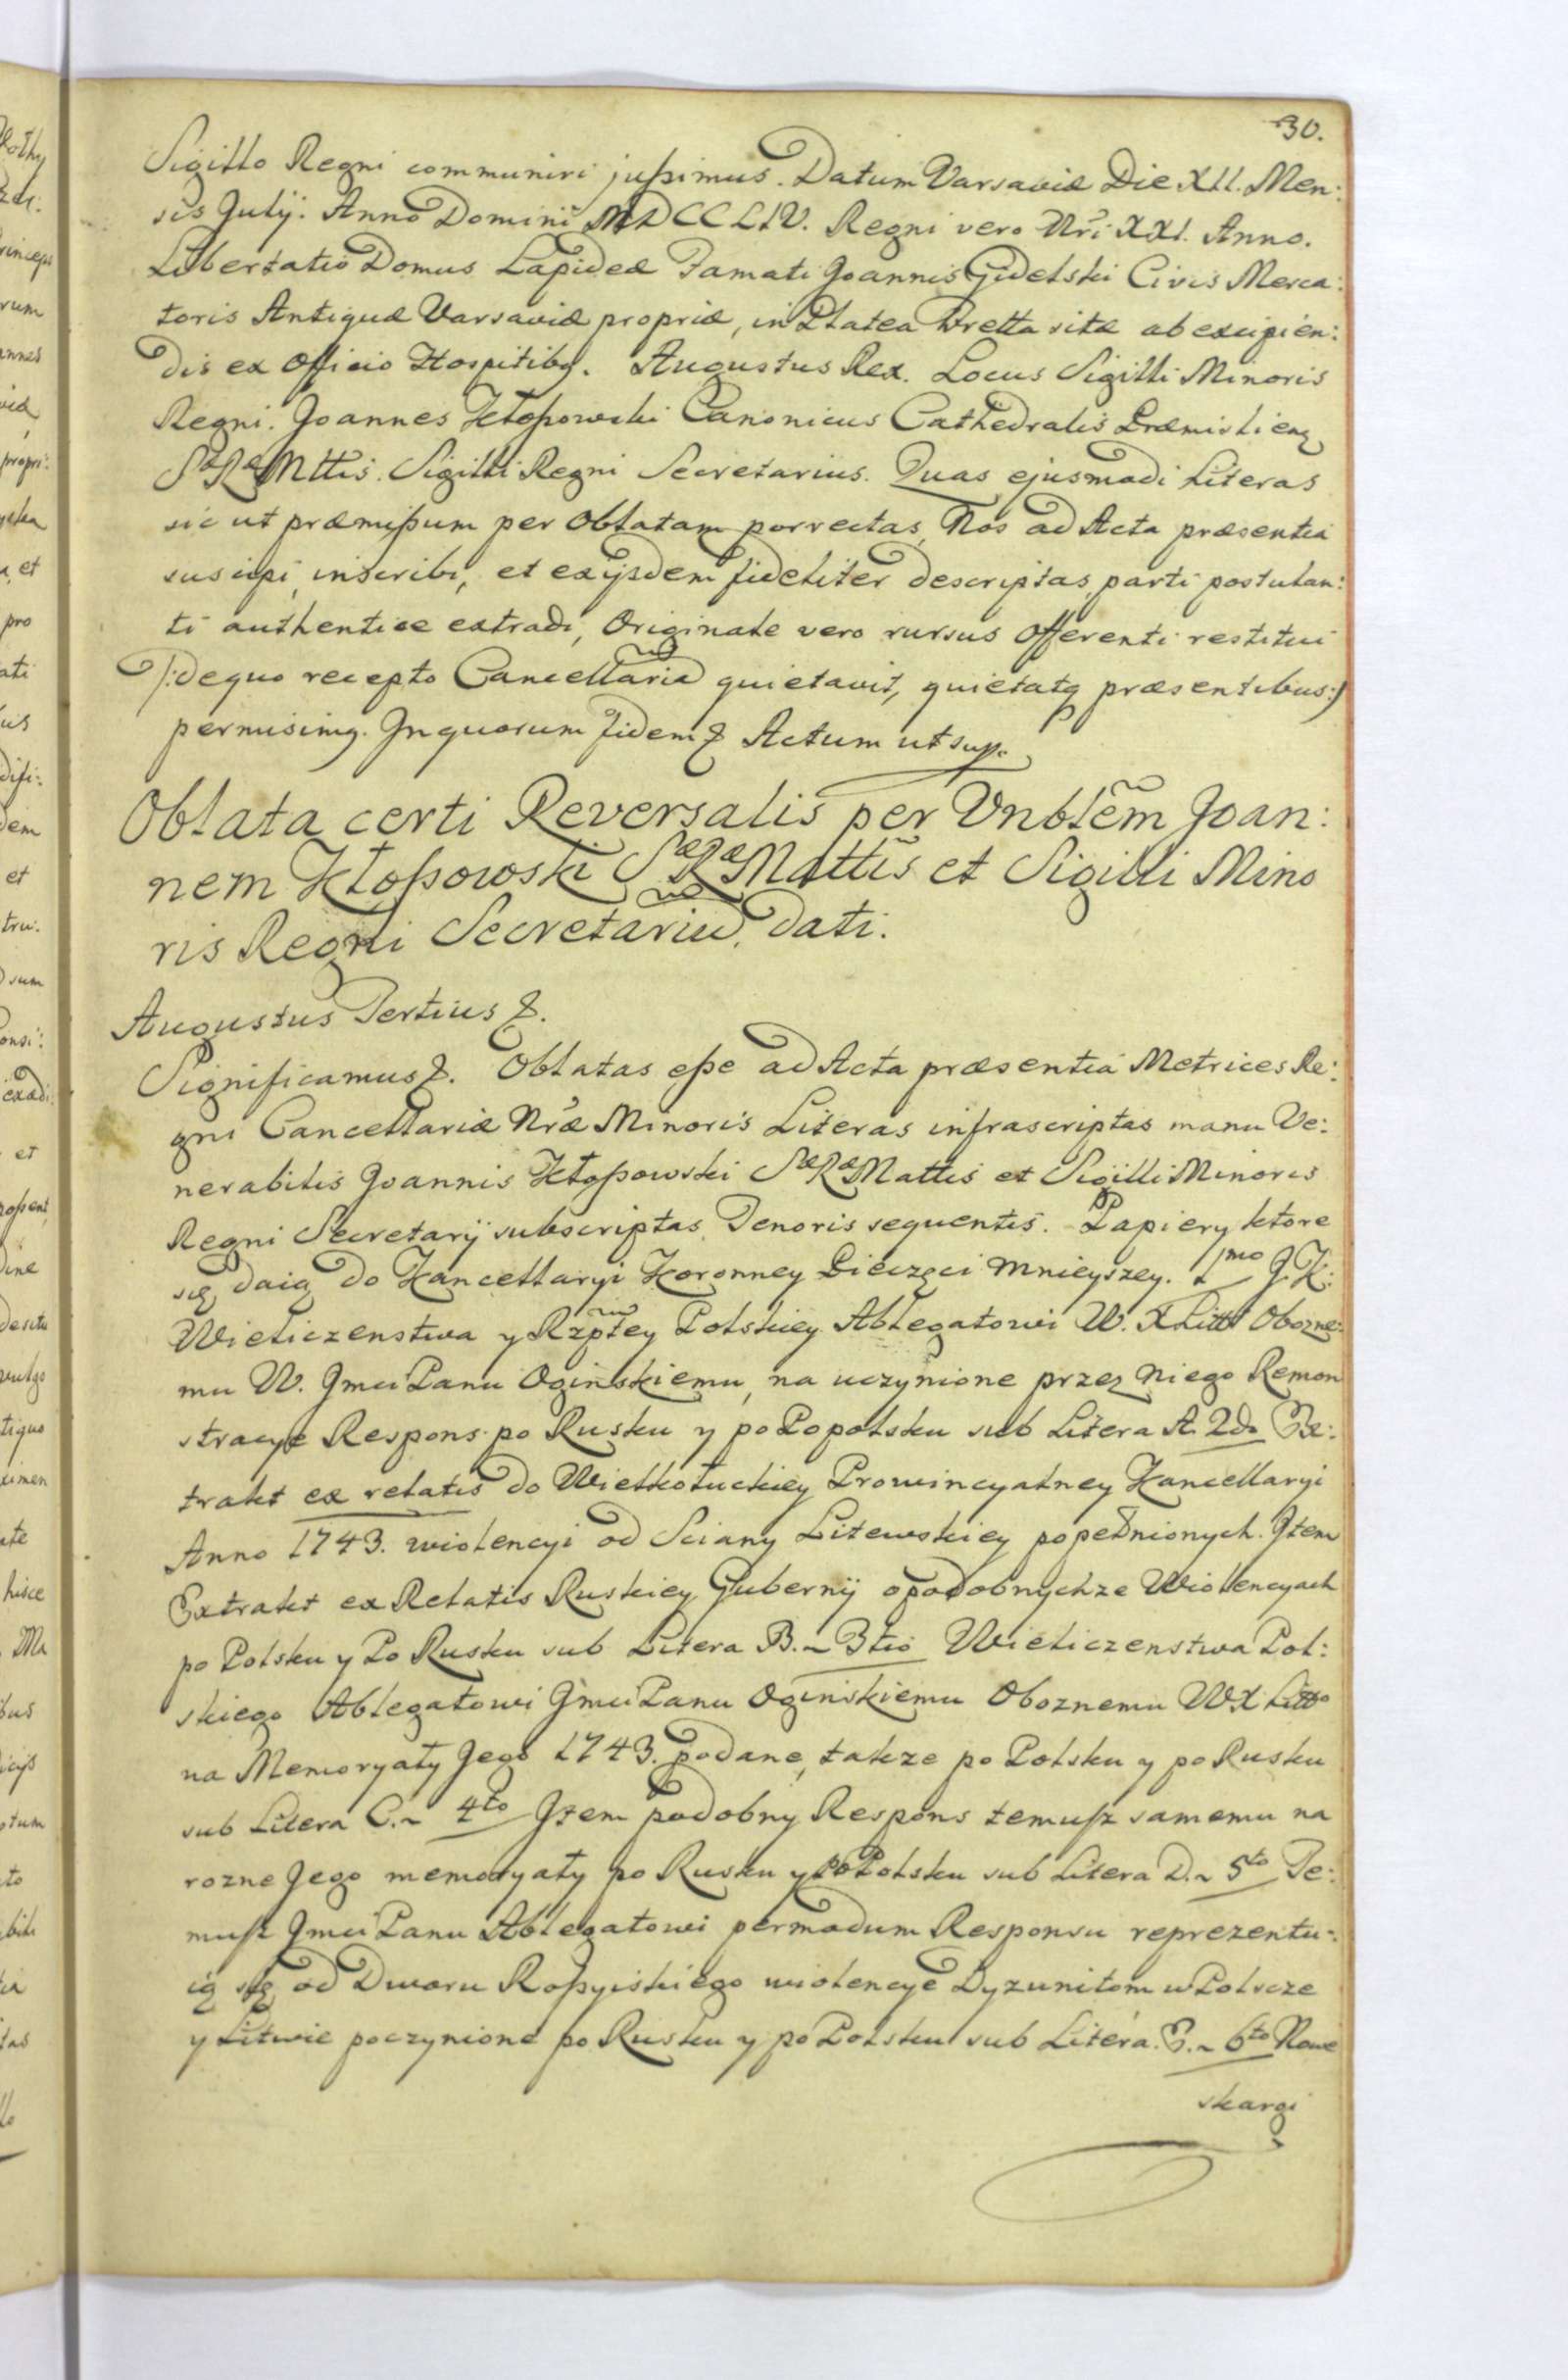 30.
Sigillo Regni communiri jussimus. Datum Varsaviæ Die XII. Men:
sis Julij. Anno Domini MDCCLIV. Regni vero Nri XXI. Anno.
Libertatio Domus Lapideæ Famati Joannis Gidelski Civis Merca:
toris Antiquæ Varsaviæ propriæ, in Platea Fretta sitæ ab excipien:
dis ex Officio Hospitibq. Augustus Rex. Locus Sigilli Minoris
Regni. Joannes Kłossowski Canonicus Cathedralis Præmislienq
SæRæMttis. Sigilli Regni Secretarius. Quas ejusmodi Literas
sic ut præmissum per Oblatam porrectas, Nos ad Acta præsentia
suscipi, inscribi, et exijsdem fideliter descriptas, parti postulan:
ti authentice extradi, Originale vero rursus Offerenti restitui
/:dequo recepto Cancellariã quietavit, quietatq præsentibus:/
permisimq. Inquorum fidem & Actum ut sup.
Oblata certi Reversalis per Vnblem Joan:
nem Kłossowski SæRæMattis et Sigilli Mino
ris Regni Secretariũ, dati.
Augustus Tertius &.
Significamus &. Oblatas esse ad Acta præsentia Metrices Re:
gni Cancellariæ Nræ Minoris Literas infrascriptas manu Ve:
nerabilis Joannis Kłossowski SæRæMattis et Sigilli Minoris
Regni Secretarij subscriptas Tenoris sequentis. Papiery ktore
się daią do Kancellaryi Koronney Pieczęci Mnieyszey. 1mo J.K:
Wieliczenstwa y Rzptey Polskiey Ablegatowi W. X Littt Obozne:
mu W. Jmci Panu Oginskiemu, na uczynione przez Niego Remon
stracye Respons po Rusku y po Popolsku sub Litera A. 2do Ex:
trakt ex relatis do Wielkołuckiey Prowincyalney Kancellaryi
Anno 1743. wiolencyi od Sciany Litewskiey popełnionych. Item
Extrakt ex Relatis Ruskiey Gubernij opodobnychze Wiolencyach
po Polsku y Po Rusku sub Litera B.~ 3tio Wieliczenstwa Pol:
skiego Ablegatowi Jmci Panu Oginskiemu Oboznemu WX Litto
na Memoryały Jego 1743. podane, takze po Polsku y po Rusku
sub Litera C.~ 4to Item podobny Respons temusz samemu na
rozne Jego memoryały po Rusku y po Polsku sub Litera D.~ 5to Te:
musz Jmci Panu Ablegatowi permodum Responsu reprezentu:
ią się od Dworu Rossyiskiego wiolencye Dyzunitom w Polscze
y Litwie poczynione po Rusku y po Polsku sub Litera. E.~ 6to Nowe
skargi